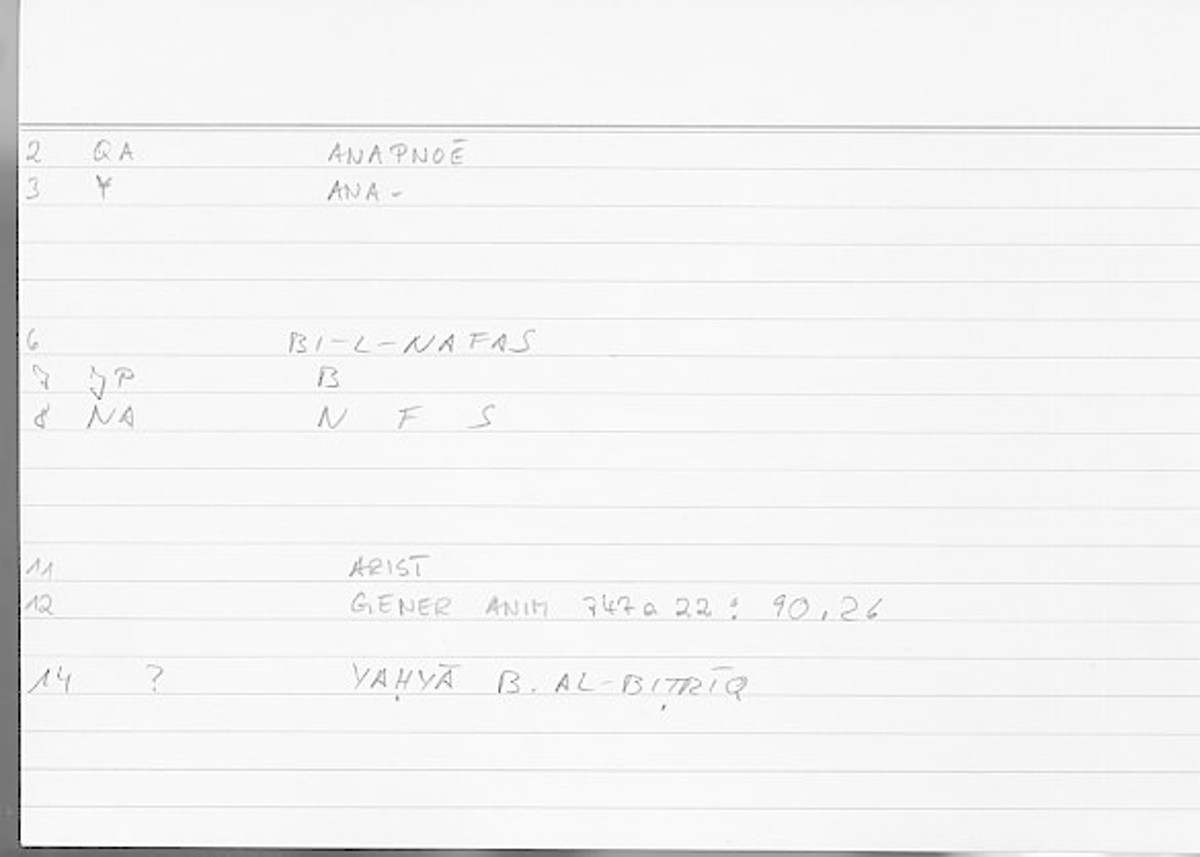 2 QA ANAPNOĒ
3 ¥ ANA-
6 BI-L-NAFAS
7 JP B
8 NA N F S
11 ARIST
12 GENER ANIM 747a22: 90,26
14 ? YAḤYĀ B. AL-BIṬRĪQ